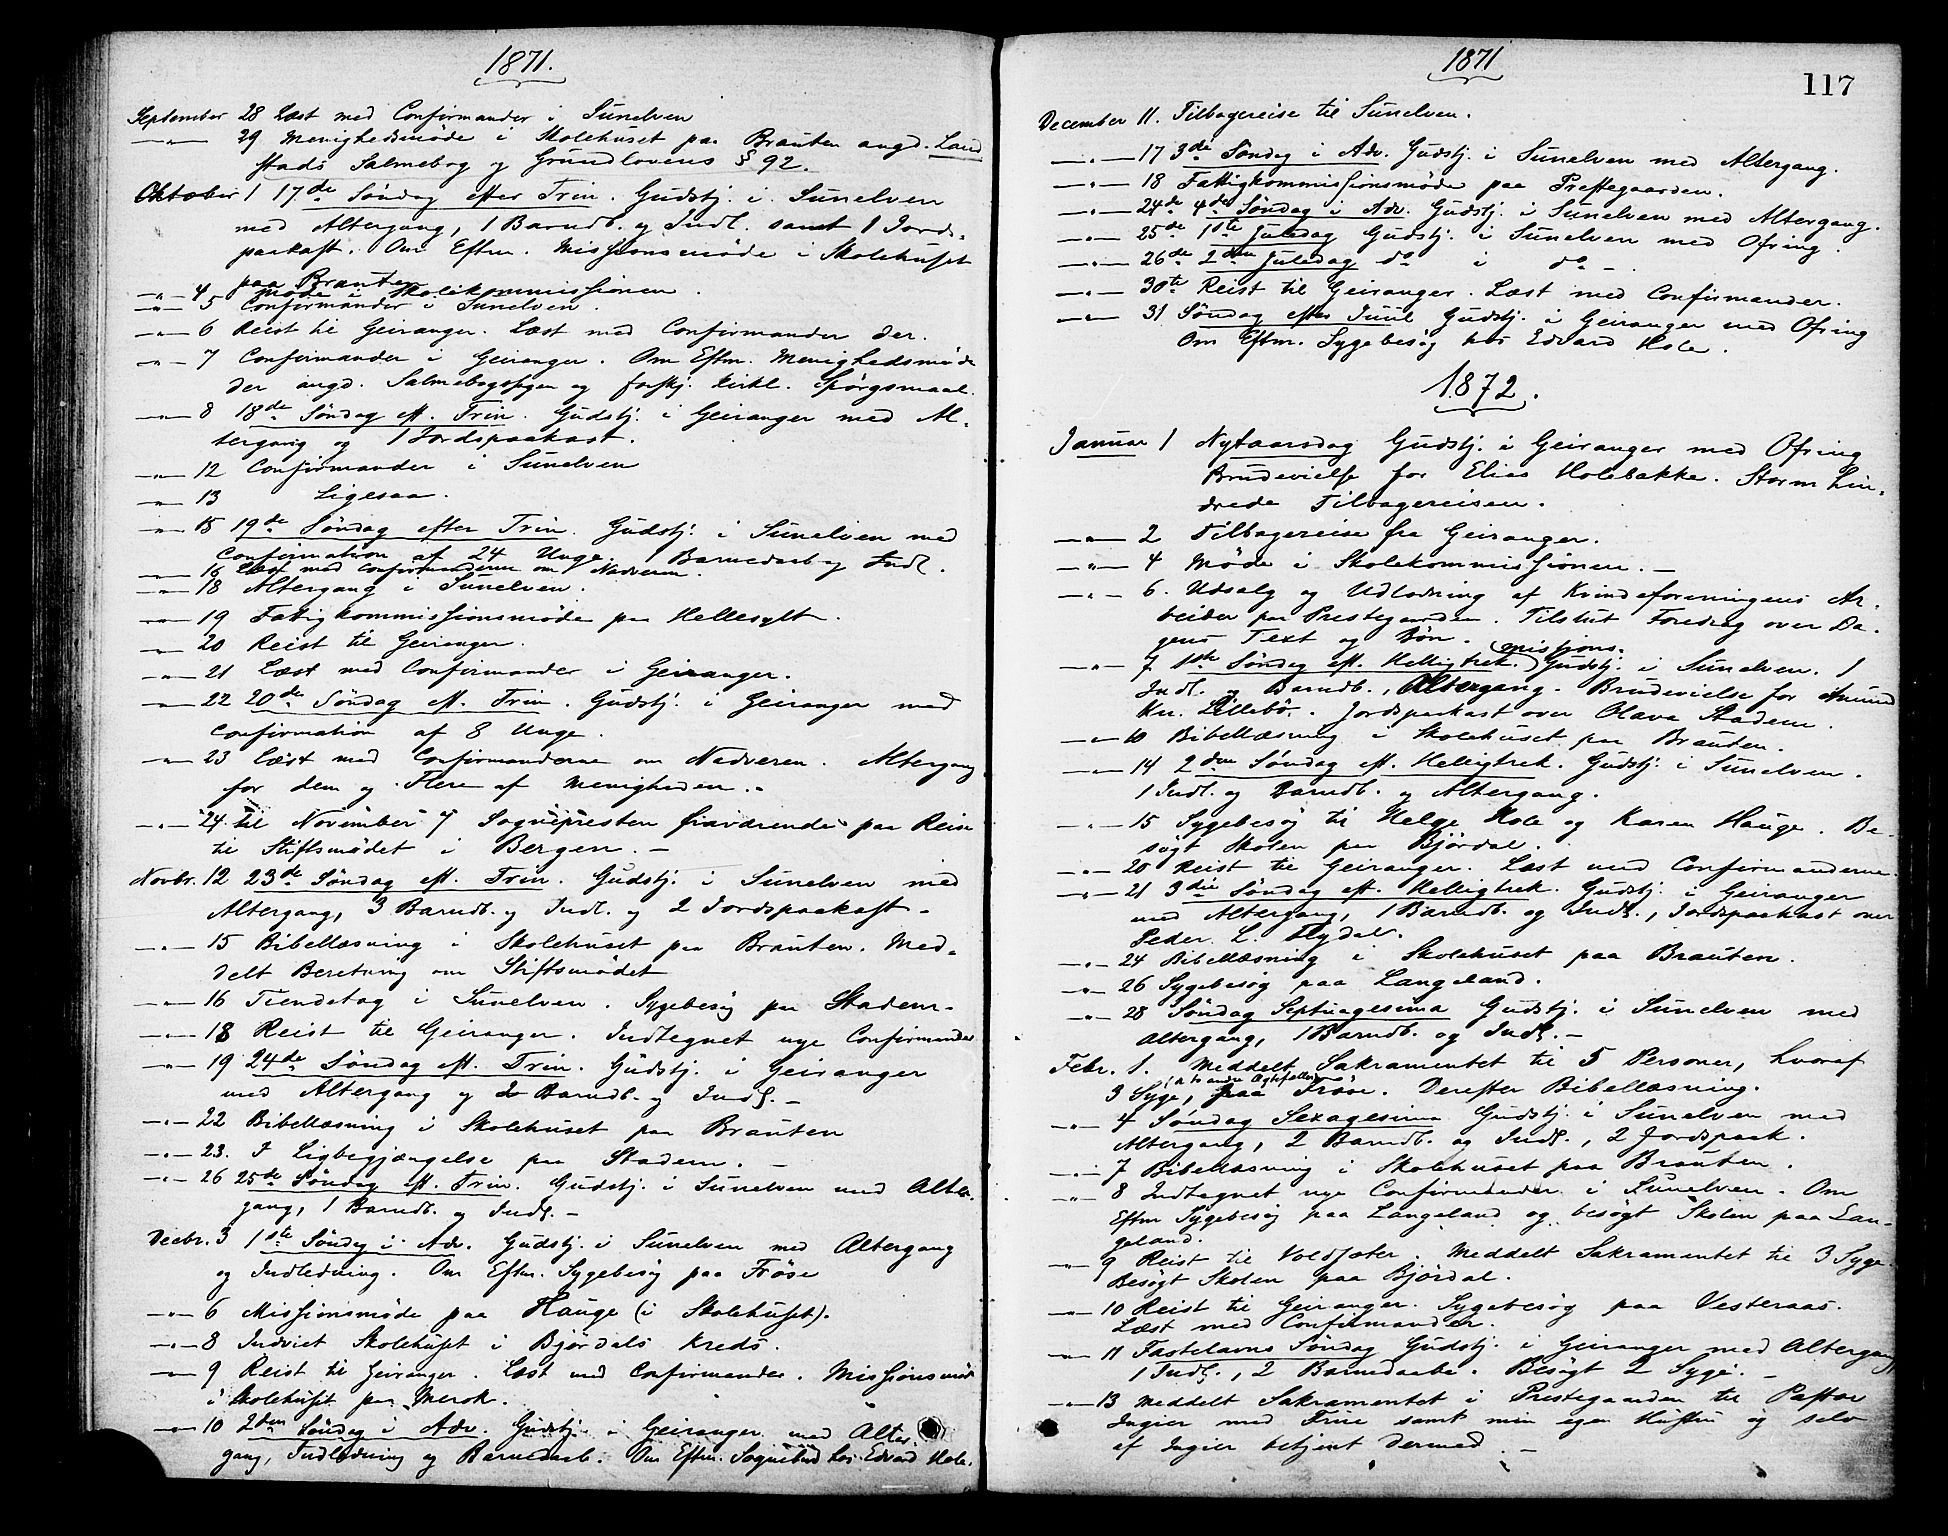 1871.
September 28 Læst med Confirmander i Sunelven
—„— 29 Menighedsmöde i Skolehuset paa Brauten angd. Land
stads Salmebog og Grundlovens § 92.
Oktober 1 17de Söndag efter Trin. Gudstj. i Sunelven
med Altergang, 1 Barndb. og Indl. samt 1 Jords-
paakast. Om Eftm. Missionsmöde i Skolehuset
paa Brauten
—„— 4 Möde i Skolekommissionen.
—„— 5 Confirmander i Sunelven.
—„— 6 Reist til Geiranger. Læst med Confirmander der.
—„— 7 Confirmander i Geiranger. Om Eftm. Menighedsmöde
der angd. Salmebogssagen og forskj. kirkl. Spörgsmaal.
—„— 8 18de Söndag eft. Trin. Gudstj. i Geiranger med Al-
tergang og 1 Jordspaakast.
—„— 12 Confirmander i Sunelven
—„— 13 Ligesaa.
—„— 15 19de Söndag efter Trin. Gudstj. i Sunelven med
Confirmation af 24 Unge. Barnedaab og Indl.
—„— 16 Læst med Confirmanderne om Nadveren.
—„— 18 Altergang i Sunelven.
—„— 19 Fattigkommissionsmöde paa Hellesylt.
—„— 20 Reist til Geiranger.
—„— 21 Læst med Confirmander i Geiranger.
—„— 22 20de Söndag eft. Trin. Gudstj. i Geiranger med
Confirmation af 8 Unge.
—„— 23 Læst med Confirmanderne om Nadveren. Altergang
for dem og Flere af Menigheden.
—„— 24 til November 7 Sognepresten fraværende paa Reise
til Stiftsmödet i Bergen. —
Novbr. 12 23de Söndag eft. Trin. Gudstj. i Sunelven med
Altergang, 3 Barndb. og Indl. og 2 Jordspaakast.
—„— 15 Bibellæsning i Skolehuset paa Brauten. Med-
delt Beretning om Stiftsmödet
—„— 16 Tiendetag i Sunelven. Sygebesög paa Stadem.
—„— 18 Reist til Geiranger. Indtegnet nye Confirmander
—„— 19 24de Söndag eft. Trin. Gudstj. i Geiranger
med Altergang og Barndb. og Indl. —
—„— 22 Bibellæsning i Skolehuset paa Brauten
—„— 23. I Ligbegjængelse paa Stadem. —
—„— 26 25de Söndag eft. Trin. Gudstj. i Sunelven med Alter-
gang, 1 Barndb. og Indl. —
Decbr. 3 1ste Söndag i Adv. Gudstj. i Sunelven med Altergang
og Indledning. Om Eftm. Sygebesög paa Fröse
—„— 6 Missionsmöde paa Hauge (i Skolehuset).
—„— 8 Indviet Skolehuset i Björdals Kreds.
—„— 9 Reist til Geiranger. Læst med Confirmander. Missionsmöde
i Skolehuset paa Merok.
—„— 10 2den Söndag i Adv. Gudstj. i Geiranger med Alter
gang, Indledning og Barnedaab. Om Eftm. Sognebud hos Edvard Hole.
1871
117
December 11. Tilbagereise til Sunelven.
—„— 17 3de Söndag i Adv. Gudstj. i Sunelven med Altergang.
—„— 18 Fattigkommissionsmöde paa Prestegaarden.
—„— 24de 4de Söndag i Adv. Gudstj. i Sunelven med Altergang.
—„— 25de 1ste Juledag Gudstj. i Sunelven med Ofring.
—„— 26de 2den Juledag do i do —.
—„— 30te Reist til Geiranger. Læst med Confirmander.
—„— 31 Söndag efter Juul Gudstj. i Geiranger med Ofring
Om Eftm. Sygebesög hos Edvard Hole.
1872.
Januar 1 Nytaarsdag Gudstj. i Geiranger med Ofring
Brudevielse for Elias Holebakke. Storm hin-
drede Tilbagereisen.
—„— 2 Tilbagereise fra Geiranger.
—„— 4 Möde i Skolekommissionen. —
—„— 6. Udsalg og Udlodning af Kvindeforeningens Ar-
beider paa Prestegaarden. Tilslut Foredrag over Da-
gens Text og Bön.
—„— 7 1ste Söndag eft. Helligtrek. Missions- Gudstj. i Sunelven. 1
Indl. og Barndb., Altergang. Brudevielse for Amund
Kn. Lillebö. Jordspaakast over Olava Stadem.
—„— 10 Bibellæsning i Skolehuset paa Brauten.
—„— 14 2den Söndag eft. Helligtrek. Gudstj. i Sunelven.
1 Indl. og Barndb. og Altergang.
—„— 15 Sygebesög til Helge Hole og Karen Hauge. Be-
sögt Skolen paa Björdal.
—„— 20 Reist til Geiranger. Læst med Confirmanderne.
—„— 21 3die Söndag eft. Helligtrek. Gudstj. i Geiranger
med Altergang, 1 Barndb. og Indl., Jordspaakast over
Peder L. Flydal.
—„— 24 Bibellæsning i Skolehuset paa Brauten.
—„— 26 Sygebesög paa Langeland.
—„— 28 Söndag Septuagesima Gudstj. i Sunelven med
Altergang, 1 Barndb. og Indl. —
Febr. 1. Meddelt Sakramentet til 5 Personer, hvoraf
3 Syge, paa Fröse. Derefter Bibellæsning.
—„— 4 Söndag Sexagesima Gudstj. i Sunelven med
Altergang, 2 Barndb. og Indl., 2 Jordspaak.
—„— 7 Bibellæsning i Skolehuset paa Brauten.
—„— 8 Indtegnet nye Confirmander i Sunelven. Om
Eftm Sygebesög paa Langeland og besögt Skolen paa Lan-
geland.
—„— 9 Reist til Voldsæter. Meddelt Sakramentet til 3 Syge.
Besögt Skolen paa Björdal.
—„— 10 Reist til Geiranger. Sygebesög paa Vesteraas.
Læst med Confirmander.
—„— 11 Fastelavns Söndag Gudstj. i Geiranger med Altergang
1 Indl., 2 Barnedaabe. Besögt 2 Syge. —
—„— 13 Meddelt Sakramentet i Prestegaarden til Pastor
Ingier med Frue samt min egen Hustru og selv
af Ingier betjent dermed. —